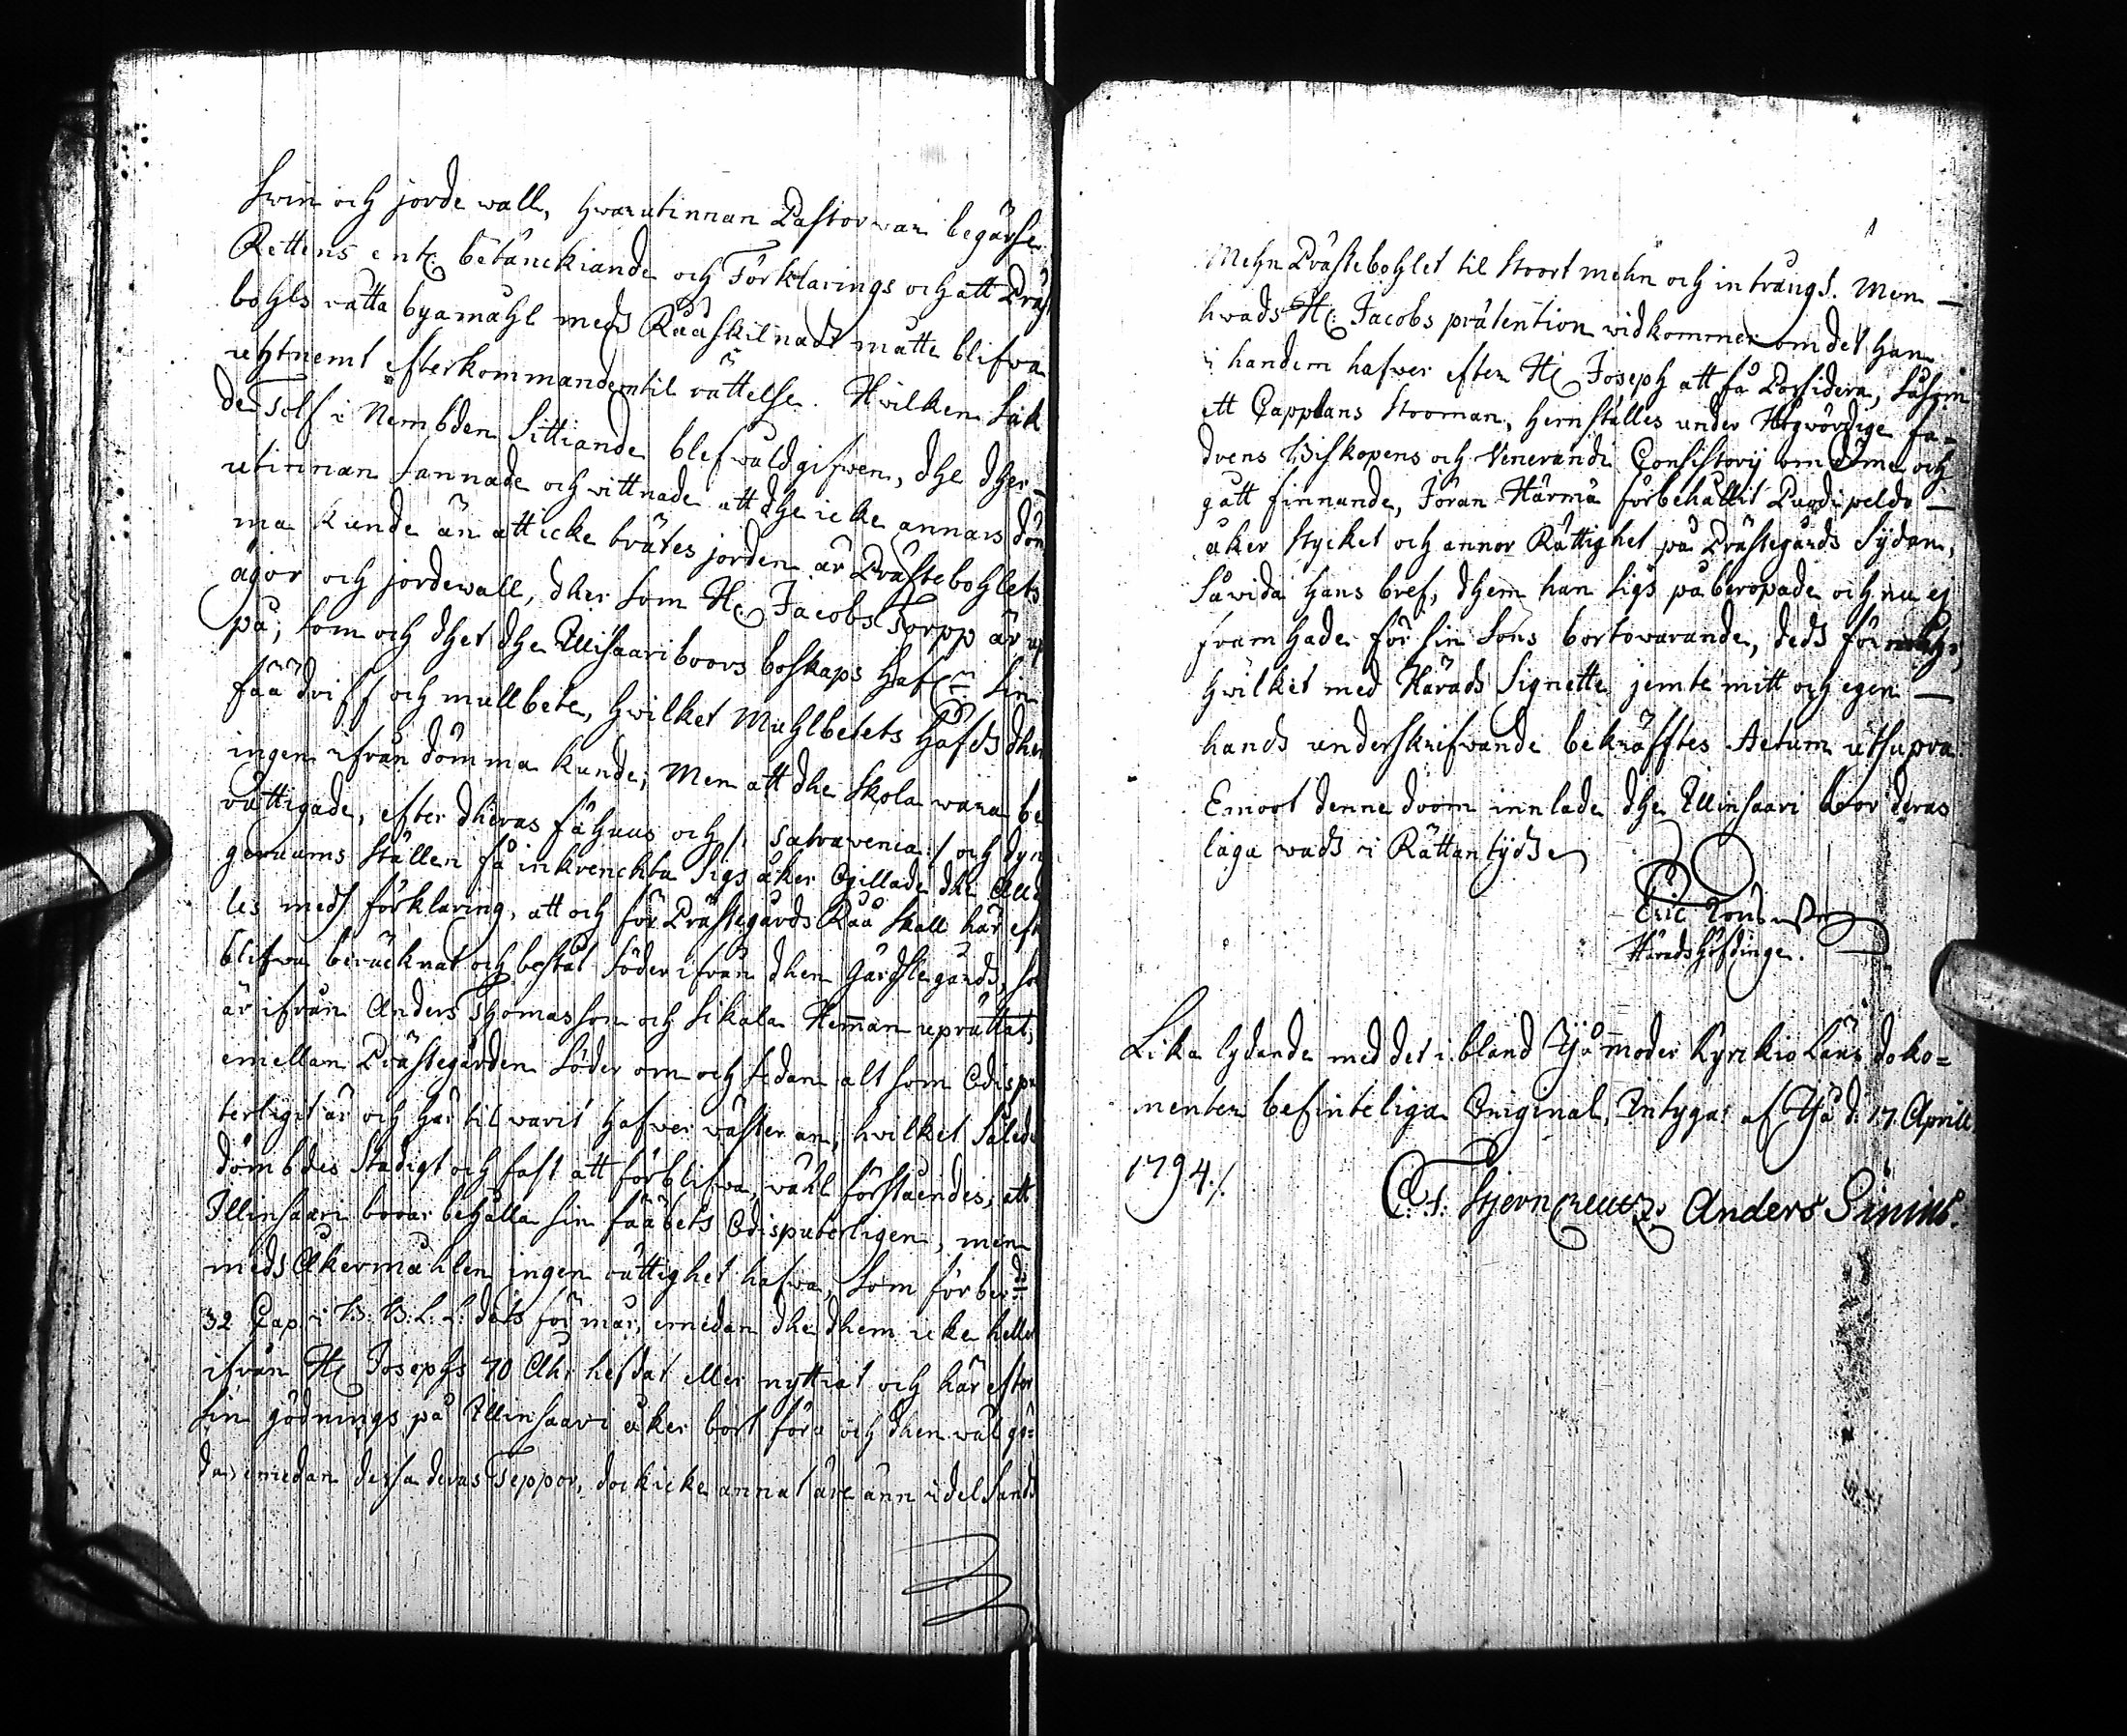 Swin och jordewall, hwarutinnan Pastor war begärse
Rettens ent. betänckiande och Förklarings och att Präst
bohls rätta byamahl meds Rååskilnadt måtte blifwa
uhtnemt efterkommandom til rättelse. Hwilken Sak
de Tolf i Nembden Sittiande blef wäld gifwen, dhe dher-
utinnan Sannade och wittnade att dhe icke annars döm
ma kunde än att icke trätes jorden är Prästebohlets
ägor och jordewall, dher som H: Jacobs Torpp är up
på, som och dhet dhe Illisaari boors boskaps haf: sin
fäädrift och mullbete, hwilket Muhlbetets häfds dhem
ingen ifrån dömma kunde; Men att dhe skola wara be
rättigade, efter dheras fähuus och /: salvavenia :/ och dyn
geruums ställen få inkrenckta Sigs åker Ogillade dhe Alld
les meds förklaring, att och för Prästegårds Råå skall här eft
blifwa beräcknat och bestå Söder ifrån dhen Gärdslegårds, so
är ifrån Anders Thomasson och Sikala Heman uprättat,
emellan Prästegården Söder om och sedan alt som Odispu
terligit är och här til warit hafwer wäster om, hwilket Sålede
dömbdes Stadigt och fast att förblifwa, wähl förståendes, att
Illinsaari boar behålla sin fääbets Odisputerligen, men
meds Åkermählen ingen rättighet hafwa, som förber:de
32 Cap. i B. B: L. L: dets förmår, emedan dhe dhem icke heller
ifrån H: Josephs 70 Åhr hefdat eller nyttiat och här efter
Sin gödnings på Illinsaari åker bort föra och dhem wäl gö-
da, emedan dessa deras Teppor, dock icke annat äre änn idel Sands
Mehn Prästebohlet til Stoort mehn och intrångs. Men -
hwads H: Jacobs prætention widkommer om det han
i handom hafwer efter H: Joseph att få Possidera, Såsom
ett Capplans Stooman, hernställes under Högwördige fa-
drens Biskopens och Venerandi Consistorij omdöme och
gått finnande, Jöran Härmä förbehållit -
åker Stycket och annor Rättighet på Prästegårds Sÿdan,
Såvida hans bref, dhem han Sigs på beropade och nu ej
framhade för Sin Sons bortowarande, deds förmåhr,
hwilket med Härads Signette jemte mitt och egen -
hands underskrifwande bekräfftes Actum utsupra
Emoot denne doom innlade dhe Illinsaari boor deras
laga wads i Rättan tijdse
Eric
Häradshöfdinge.
Lika lydande med det i bland Ijo moder Kyrckio Läns doko-
menter befinteliga Original, Intygar af Ijå d: 17. Aprill
1794./.
C: F. Stjerncreutz. Anders Simius.